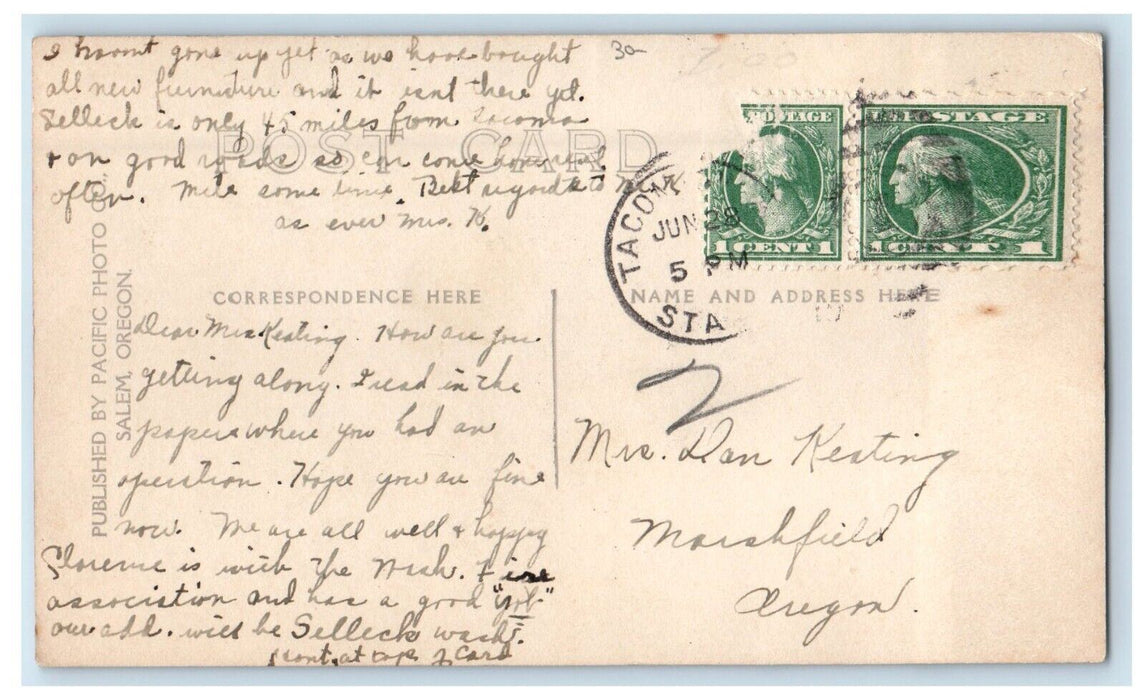 I havnt gone up yet as we have bought
all new furniture and it isnt there yet.
Selleck is only 45 miles from Tacoma
+ on good roads so can come home real
often. Write some time. Best regards to
as ever Mrs. K.
30
POST CARD
TACOMA
JUN 28
5 PM
STA
POSTAGE
1 CENT 1
POSTAGE
1 CENT 1
PUBLISHED BY PACIFIC PHOTO CO.,
SALEM, OREGON.
CORRESPONDENCE HERE
NAME AND ADDRESS HERE
Dear Mrs Keating. How are you
getting along. I read in the
papers where you had an
operation. Hope you are fine
now. We are all well + happy
Florence is with the Wash. Fire
association and has a good "job"
our add. will be Selleck Wash.
cont. at top of card
2
Mrs. Dan Keating
Marshfield
Oregon.